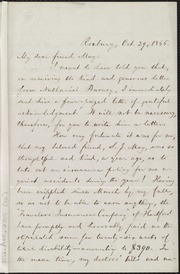 Roxbury, Oct. 29, 1866.
My dear friend May:
I meant to have told you that, on receiving the kind and generous letter from Nathaniel Barney, I immediately sent him a four-paged letter of grateful acknowledgment. It will not be necessary, therefore, for you to write him a letter.
How very fortunate it was for me, that my beloved friend, S. J. May, was so thoughtful and kind, a year ago, as to take out an insurance policy for me against accidents during the year! Having been crippled since March by my fall, so as not to be able to earn anything, the Travelers Insurance Company of Hartford have promptly and honorably paid me the stipulated sum for twenty-six weeks of total disability—amounting to $390. In the mean time, my doctors' bills and